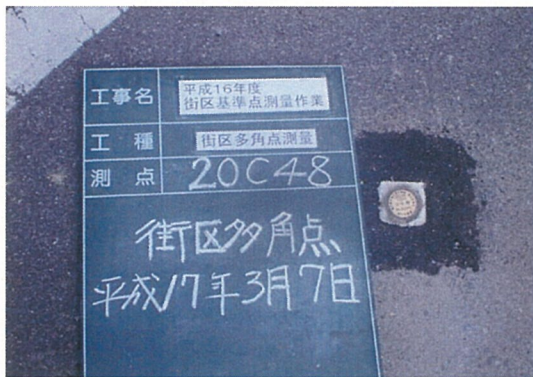 工事名
平成16年度
街区基準点測量作業
工種
街区多角点測量
測点
20C48
街区多角点
平成17年3月7日